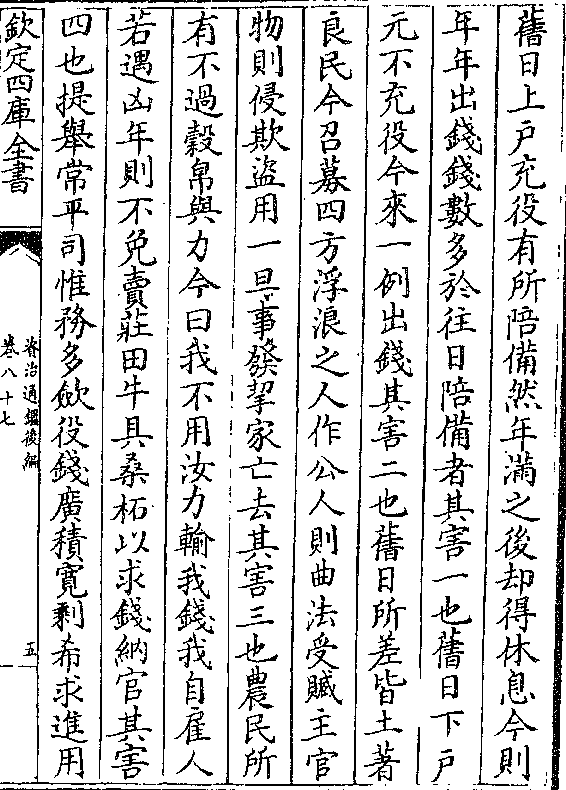 舊日上戶充役有所陪備然年滿之後却得休息今則
年年出錢錢數多於往日陪備者其害一也舊日下戶
元不充役今來一例出錢其害二也舊日所差皆土著
良民今召募四方浮浪之人作公人則曲法受贓主官
物則侵欺盜用一旦事發挈家亡去其害三也農民所
有不過穀帛與力今曰我不用汝力輸我錢我自雇人
若遇凶年則不免賣莊田牛具桑柘以求錢納官其害
四也提舉常平司惟務多斂役錢廣積寬剩希求進用
欽定四庫全書
資治通鑑後編
卷八十七
五